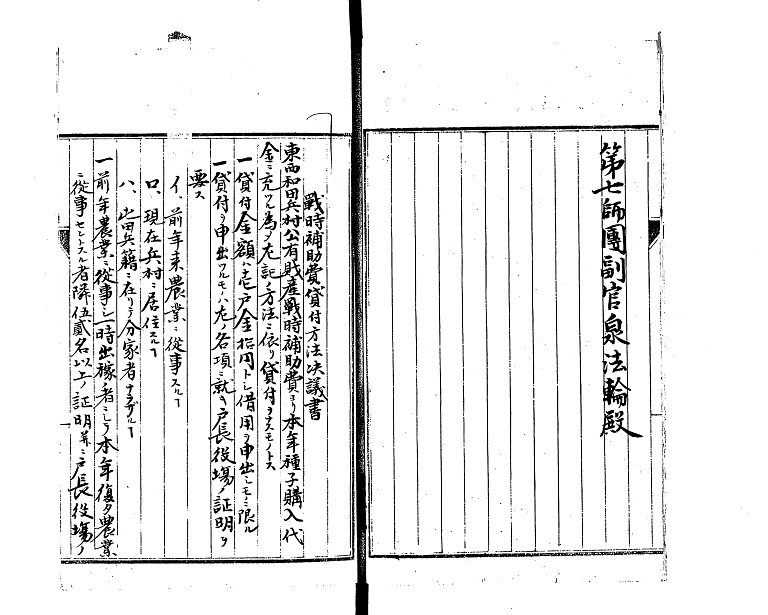 第七師團副官泉法輪殿
戰時補助費貸付方法决議書
東西和田兵村公有財産戰時補助費ヨリ本年種子購入代
金ニ充ツル為メ左記ノ方法ニ依リ貸付ヲナスモノトス
一貸付金額ハ壱戸金拾円トシ借用ヲ申出シモノニ限ル
一貸付ヲ申出ツルモノハ左ノ各項ニ就キ戸長役塲ノ証明ヲ
要ス
イ、前年来農業ニ從事スルヿ
ロ、現在兵村ニ居住スルヿ
ハ、屯田兵籍ニ在リテ分家者ナラザルヿ
一前年農業ニ從事シ一時出稼ノ者ニシテ本年復タ農業
ニ從事セントスル者隣伍貳名以上ノ証明并ニ戸長役塲ノ